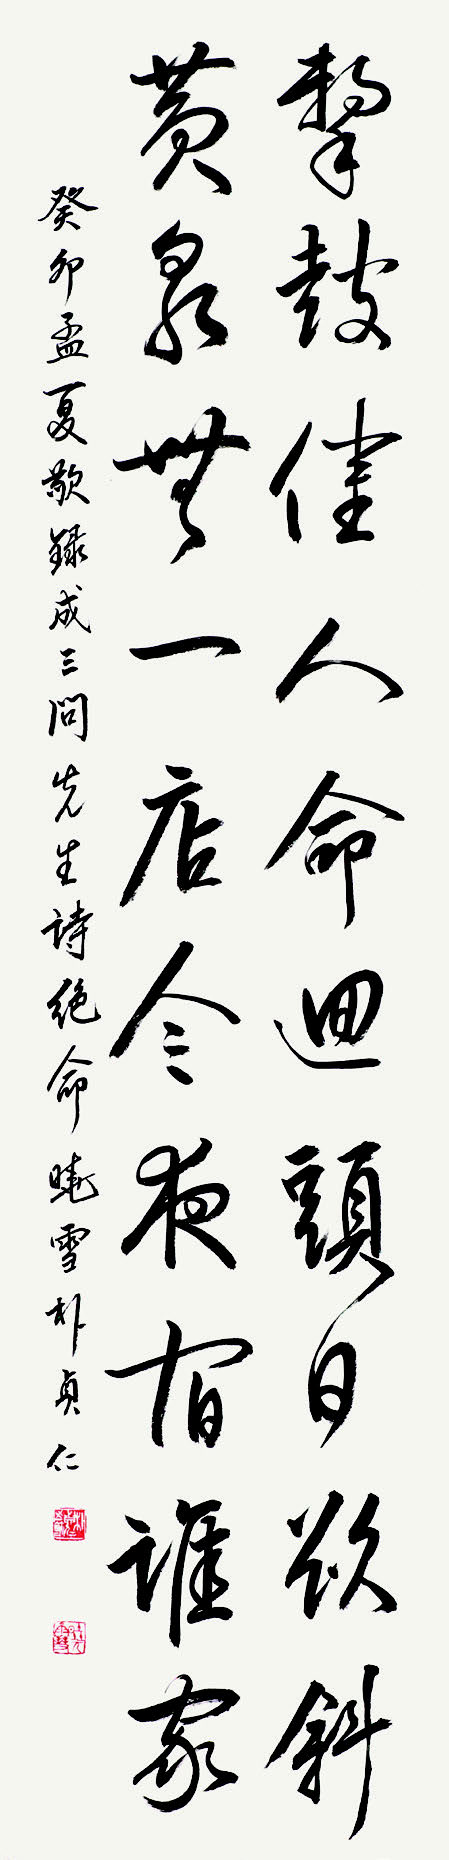 擊鼓催人命迴頭日欲斜
黃泉無一店今夜宿誰家
癸卯孟夏敬錄成三問先生詩絶命 曉雪朴貞仁